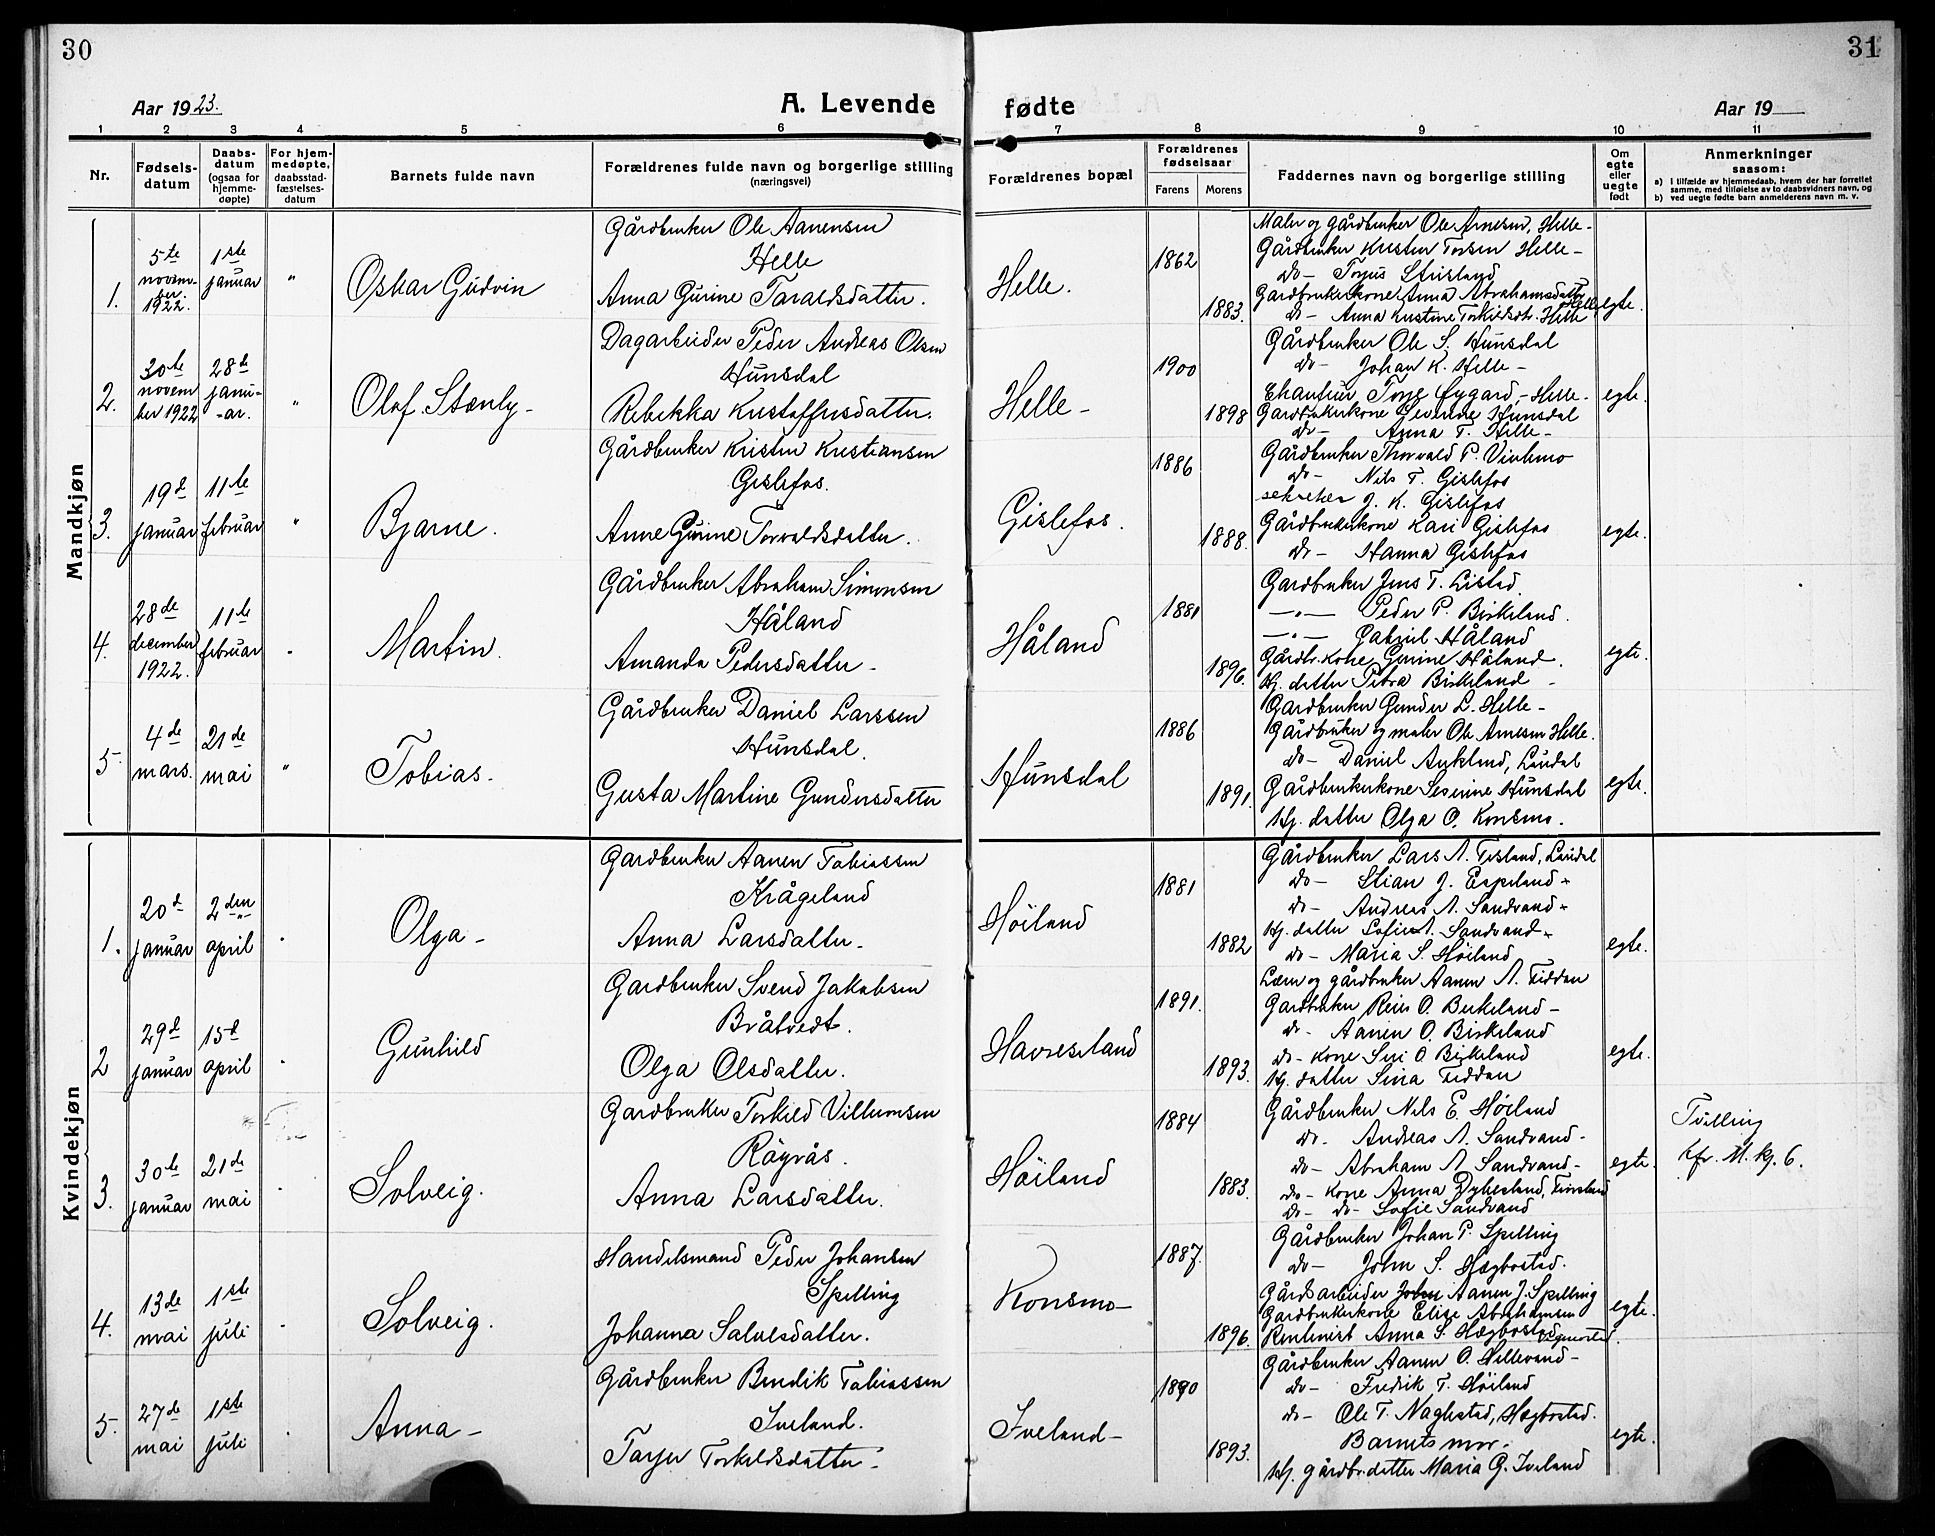 30
31
Aar 1923.
A. Levende
fødte
Aar 19
1 2 3 4 5 6 7 8 9 10 11
Nr.
Fødsels-
datum
Daabs-
datum
(ogsaa for
hjemme-
døpte)
For hjem-
medøpte,
daabsstad-
fæstelses-
datum
Barnets fulde navn
Forældrenes fulde navn og borgerlige stilling
(næringsvei)
Forældrenes bopæl
Forældrenes
fødselsaar
Farens
Morens
Faddernes navn og borgerlige stilling
Om
egte
eller
uegte
født
Anmerkninger
saasom:
a) i tilfælde av hjemmedaab, hvem der har forrettet
samme, med tilføielse av to daabsvidners navn, og
b) ved uegte fødte barn anmelderens navn m. v.
Mandkjøn
1.
5te
novem-
ber
1922.
1ste
januar
"
Oskar Gudvin
Gårdbruker Ole Aanensen
Helle
Anna Gurine Taraldsdatter.
Helle.
1862
1883.
Maler og gårdbruker Ole Arnesen, Helle-
Gårdbruker Kristen Torsen Helle-
do- Torjus Stusland
Gardbrukerkone Anna Abrahamsdatter Helle
do- Anna Kristine Torkildsdtr. Helle
egte.
2.
30te
novem
ber 1922
28d
janu-
-ar.
"
Olaf Stenly-
Dagarbeider Peder Andreas Olsen
Hunsdal
Rebekka Kristoffersdatter.
Helle-
1900
1898
Gårdbruker Ole S. Hunsdal
do- Johan K. Helle-
Chaufeur Torje Øygard,-Helle-
Gardbrukerkone Sesinne Hunsdal
do- Anna T. Helle-
egte.
3.
19d
januar
11te
februar
"
Bjarne.
Gårdbruker Kristen Kristiansen
Gislefos.
Anne Gurine Torvaldsdatter.
Gislefos.
1886
1888.
Gårdbruker Thorvald P. Viblemo
do- Nils T. Gislefos
sekretær J. K. Gislefos
Gårdbrukerkone Kari Gislefos
do- Hanna Gislefos
egte.
4.
28de
december
1922.
11te
februar
"
Martin.
Gårdbruker Abraham Simonsen
Håland
Amanda Pedersdatter-
Håland
1881
1896.
Gardbruker Jens T. Listad.
-"- Peder P. Birkeland.
-"- Gabriel Håland
Gårdbr.kone Gurine Håland.
Hj. datter Petra Birkeland-
egte.
5
4de
mars.
21de
mai
"
Tobias.
Gårdbruker Daniel Larssen
Hunsdal.
Gusta Martine Gundersdatter
Hunsdal
1886
1891.
Gardbruker Gunder L. Helle-
Gårdbruker og maler Ole Arnesen Helle.
do- Daniel Aukland, Laudal
Gårdbrukerkone Sesinne Hunsdal
Hj. datter Olga O. Konsmo.
egte.
Kvindekjøn
1.
20d
januar
2den
april
"
Olga-
Gardbruker Aanen Tobiassen
Krågeland
Anna Larsdatter-
Høiland
1881
1882
Gårdbruker Lars A. Tisland, Laudal
do- Stian J. Espeland-
do- Andreas A. Sandvand-
Hj. datter Sofie A. Sandvand-
do- Maria S. Høiland
egte.
2
29d
januar
15d
april
"
Gunhild
Gardbruker Svend Jakobsen
Bråtvedt.
Olga Olsdatter.
Havreseland
1891.
1893.
Lærer og gårdbruker Aanen A. Fiddan
Gardbruker Reier O. Birkeland-
do- Aanen O. Birkeland
do- kone Siri O Birkeland
Hj. datter Sina Fiddan
egte.
3.
30te
januar
21de
mai
"
Solveig.
Gardbruker Torkild Villumsen
Røyrås.
Anna Larsdatter.
Høiland
1884
1883.
Gårdbruker Nils E. Høiland
do. Andreas A. Sandvand-
do- Abraham A Sandvand-
do- kone Anna Dyblesland, Finsland
do- do- Sofie Sandvand
egte.
Tvilling
kfr. M. kj. 6.
4.
13de
mai
1ste
juli
"
Solveig.
Handelsmand Peder Johansen
Spilling
Johanna Salvesdatter.
Konsmo-
1887.
1896.
Gårdbruker Johan P. Spilling
do- John S. Hægbostad.
Gårdsarbeider Aanen J. Spilling
Gardbrukerkone Elise Abrahamsen
Rentenist Anna S. Hægbostad
egte.
5.
27de
mai
1ste
juli
"
Anna-
Gårdbruker Bendik Tobiassen
Iveland.
Tarjer Torkildsdatter-
Iveland-
1890
1893.
Gårdbruker Aanen O. Hellevand-
do- Fredrik T. Høiland
do- Ole T. Naglestad, Hægbostad.
Barnets mor-
Hj. gårdbr.datter Maria G. Iveland
egte.